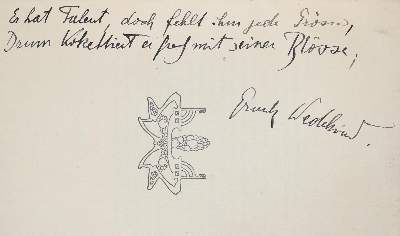 Er hat Talent, doch fehlt ihm jede Grösse,
Drum kokettiert er frech mit seiner Blösse.
Frank Wedekind.